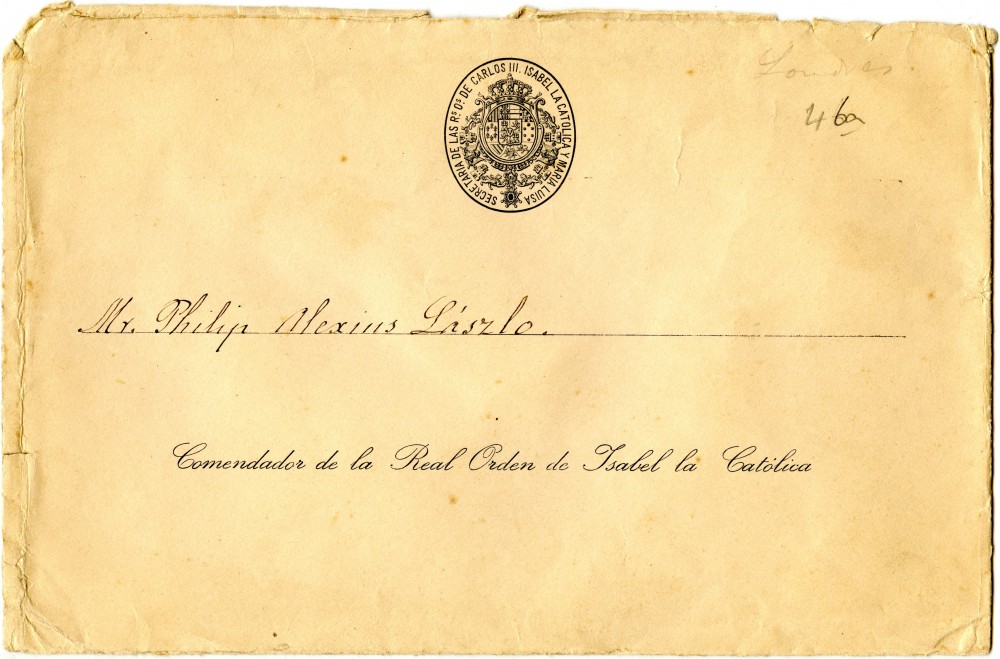 Londres.
46a
SECRETARIA DE LAS Rˢ. Oˢ. DE CARLOS III. ISABEL LA CATOLICA Y MARIA LUISA
Mr. Philip Alexius László.
Comendador de la Real Orden de Isabel la Católica